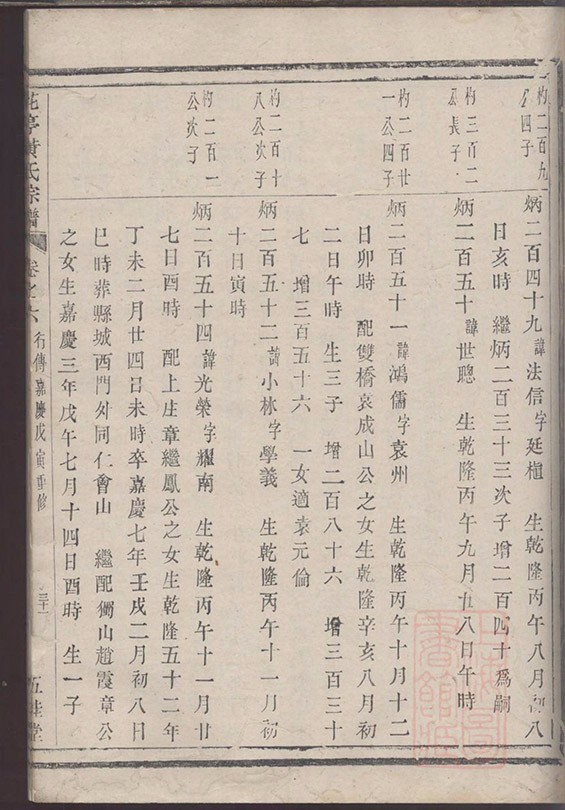 杓二百九
公四子
炳二百四十九諱法信字廷植 生乾隆丙午八月初八
日亥時 繼炳二百三十三次子增二百四十爲嗣
杓三百二
公長子
炳二百五十諱世聰 生乾隆丙午九月 八日午時
杓二百廿
一公四子
炳二百五十一諱鴻儒字袁州 生乾隆丙午十月十二
日卯時 配雙橋袁成山公之女生乾隆辛亥八月初
二日午時 生三子 增二百八十六 增三百三十
七 增三百五十六 一女適袁元倫
杓二百十
八公次子
炳二百五十二諱小林字學義 生乾隆丙午十一月二
十日寅時
杓二百一
公次子
炳二百五十四諱光榮字耀南 生乾隆丙午十一月廿
七日酉時 配上庄章繼鳳公之女生乾隆五十二年
丁未二月廿四日未時卒嘉慶七年壬戌二月初八日
巳時葬縣城西門外同仁會山 繼配獨山趙霞章公
之女生嘉慶三年戊午七月十四日酉時 生一子
花亭黄氏宗譜 卷之六 行傳嘉慶戊寅重修 五桂堂
上海圖書館藏